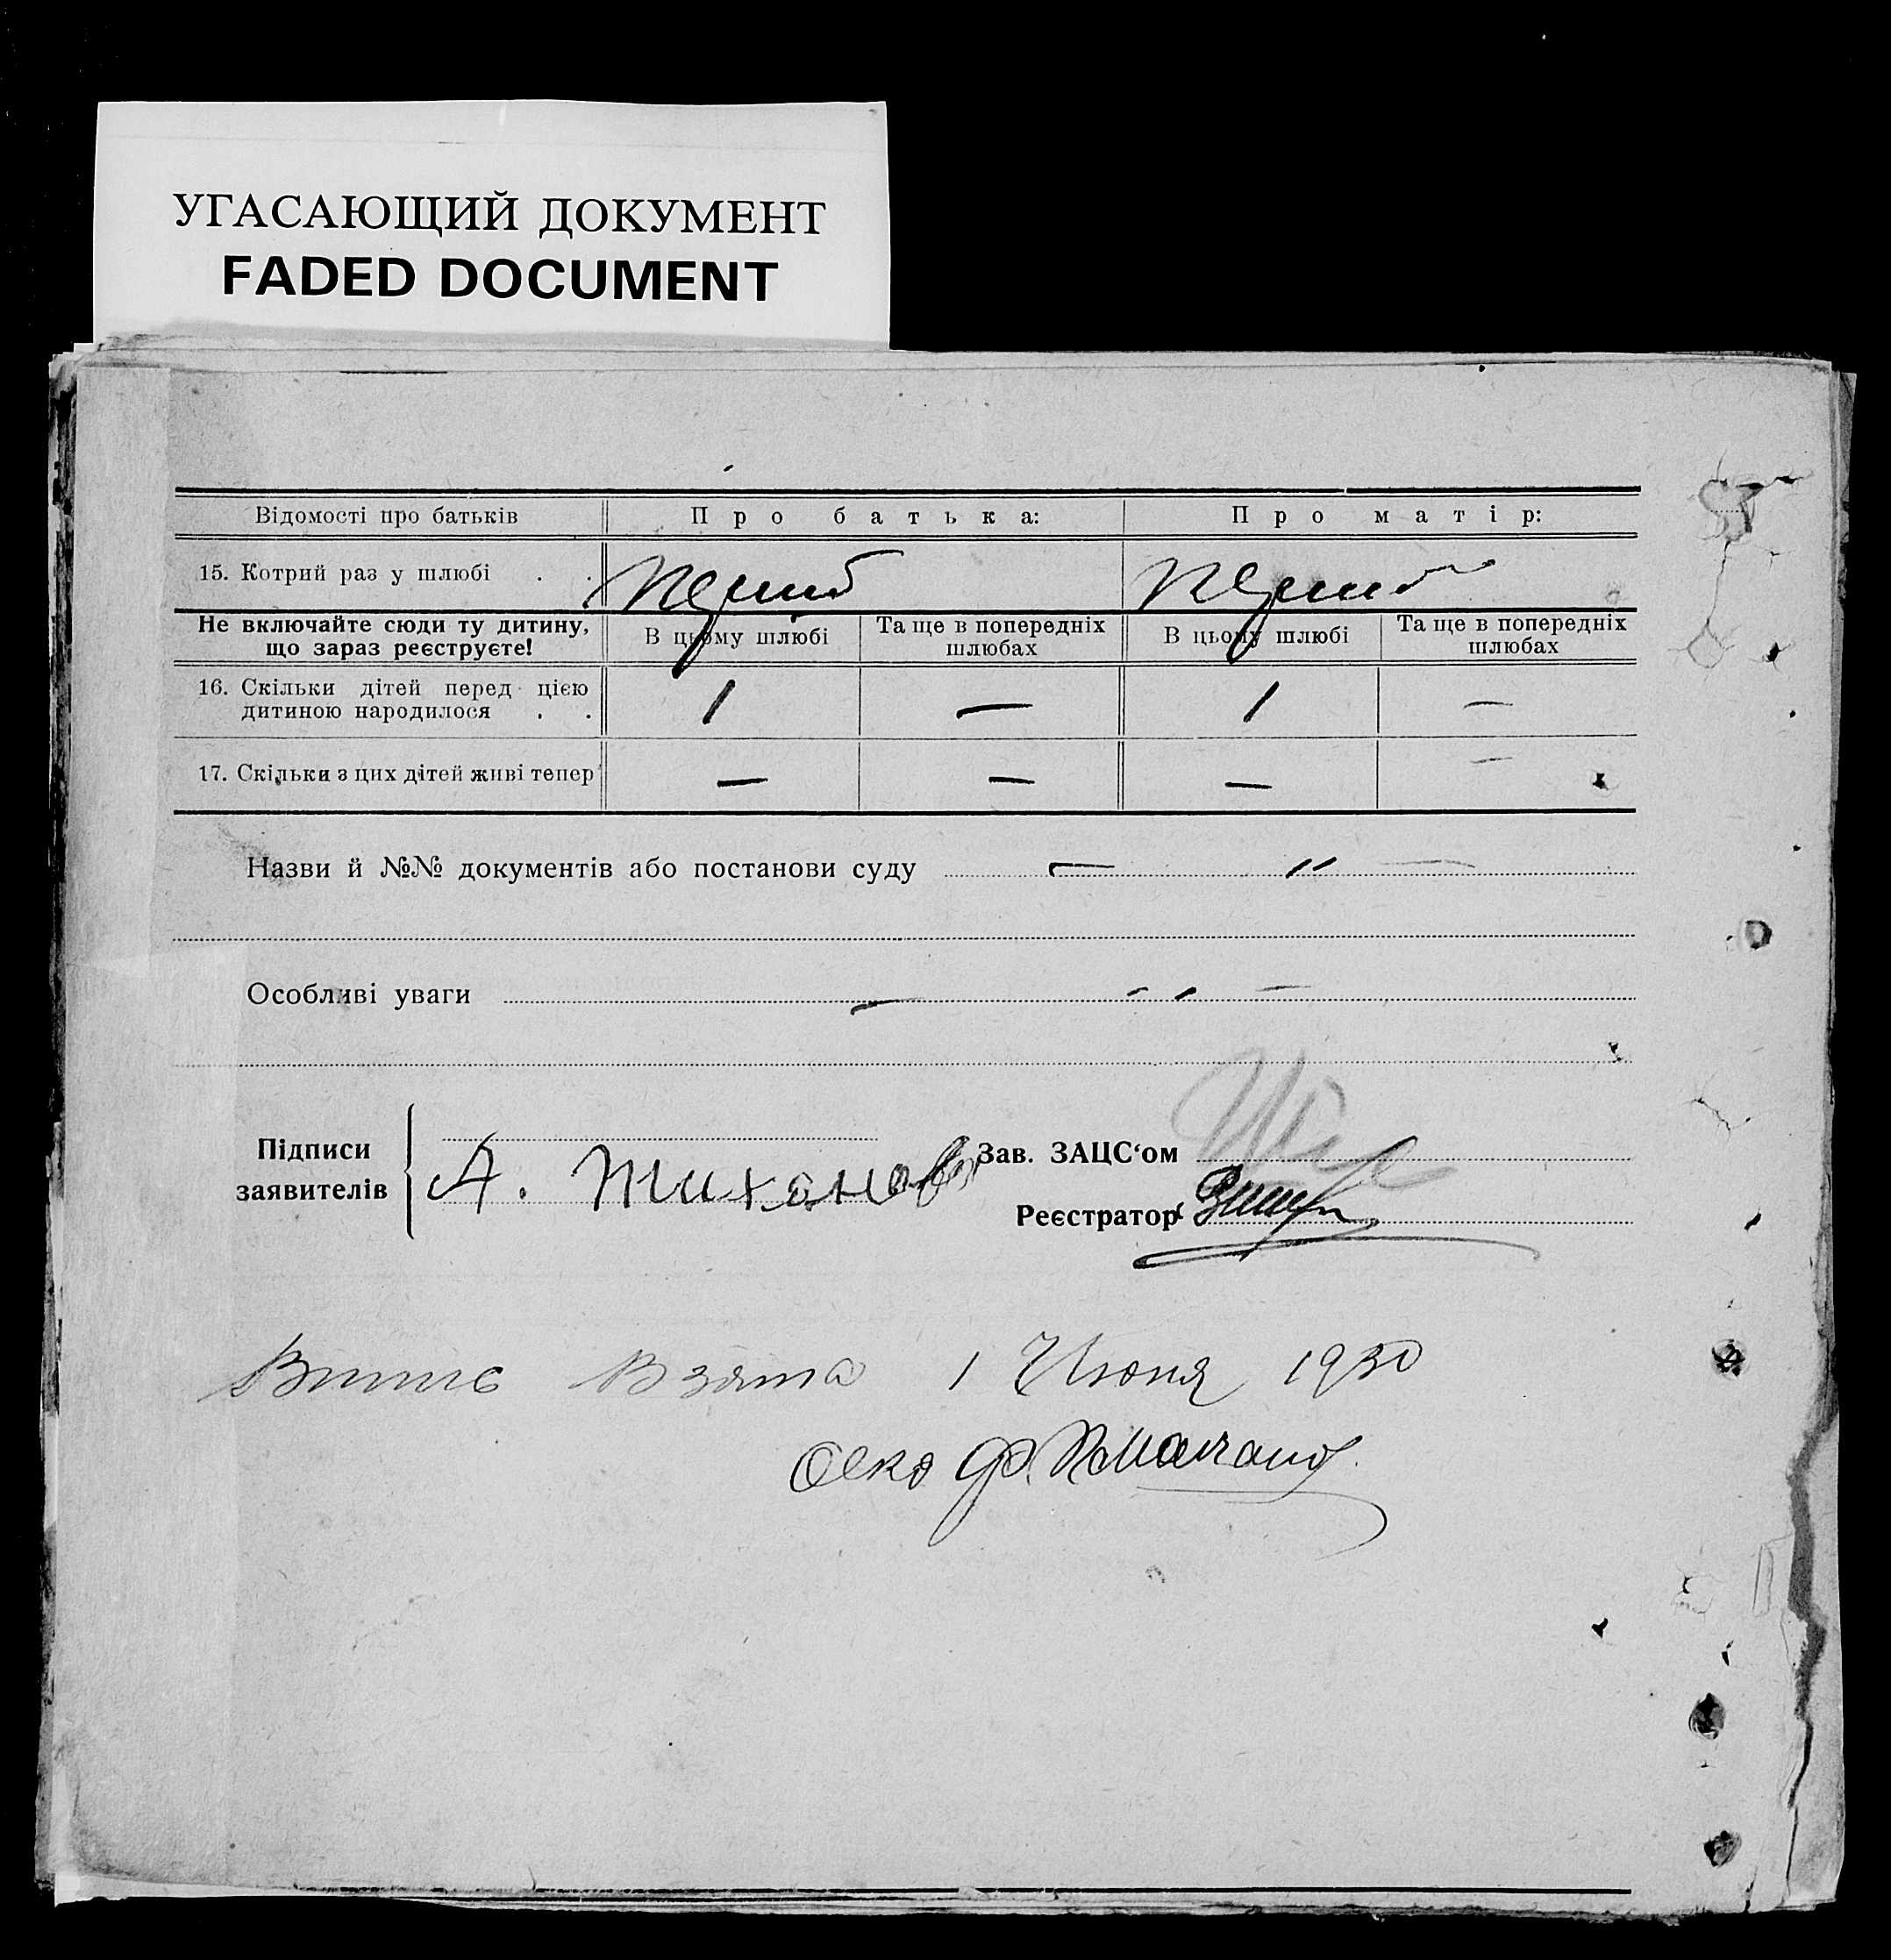 УГАСАЮЩИЙ ДОКУМЕНТ
FADED DOCUMENT
Відомості про батьків Про батька: Про матір:
15. Котрий раз у шлюбі . . Перший Перший
Не включайте сюди ту дитину, що зараз реєструєте! В цьому шлюбі Та ще в попередніх шлюбах В цьому шлюбі Та ще в попередніх шлюбах
16. Скільки дітей перед цією дитиною народилося . . 1 — 1 —
17. Скільки з цих дітей живі тепер — — — —
Назви й №№ документів або постанови суду — " —
Особливі уваги — " —
Підписи заявителів А. Тиханов
Зав. ЗАЦС‘ом
Реєстратор
Взята 1 Июня 1930